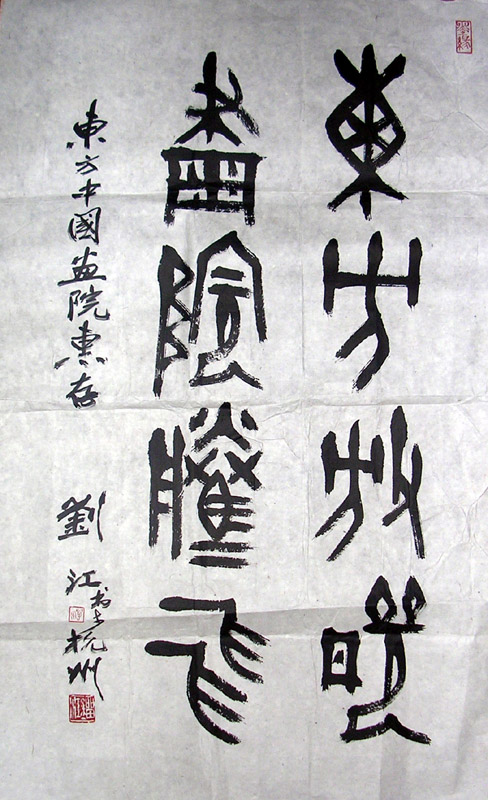 東方放曉
畫院騰飛
東方中國畫院惠存
劉江書於杭州